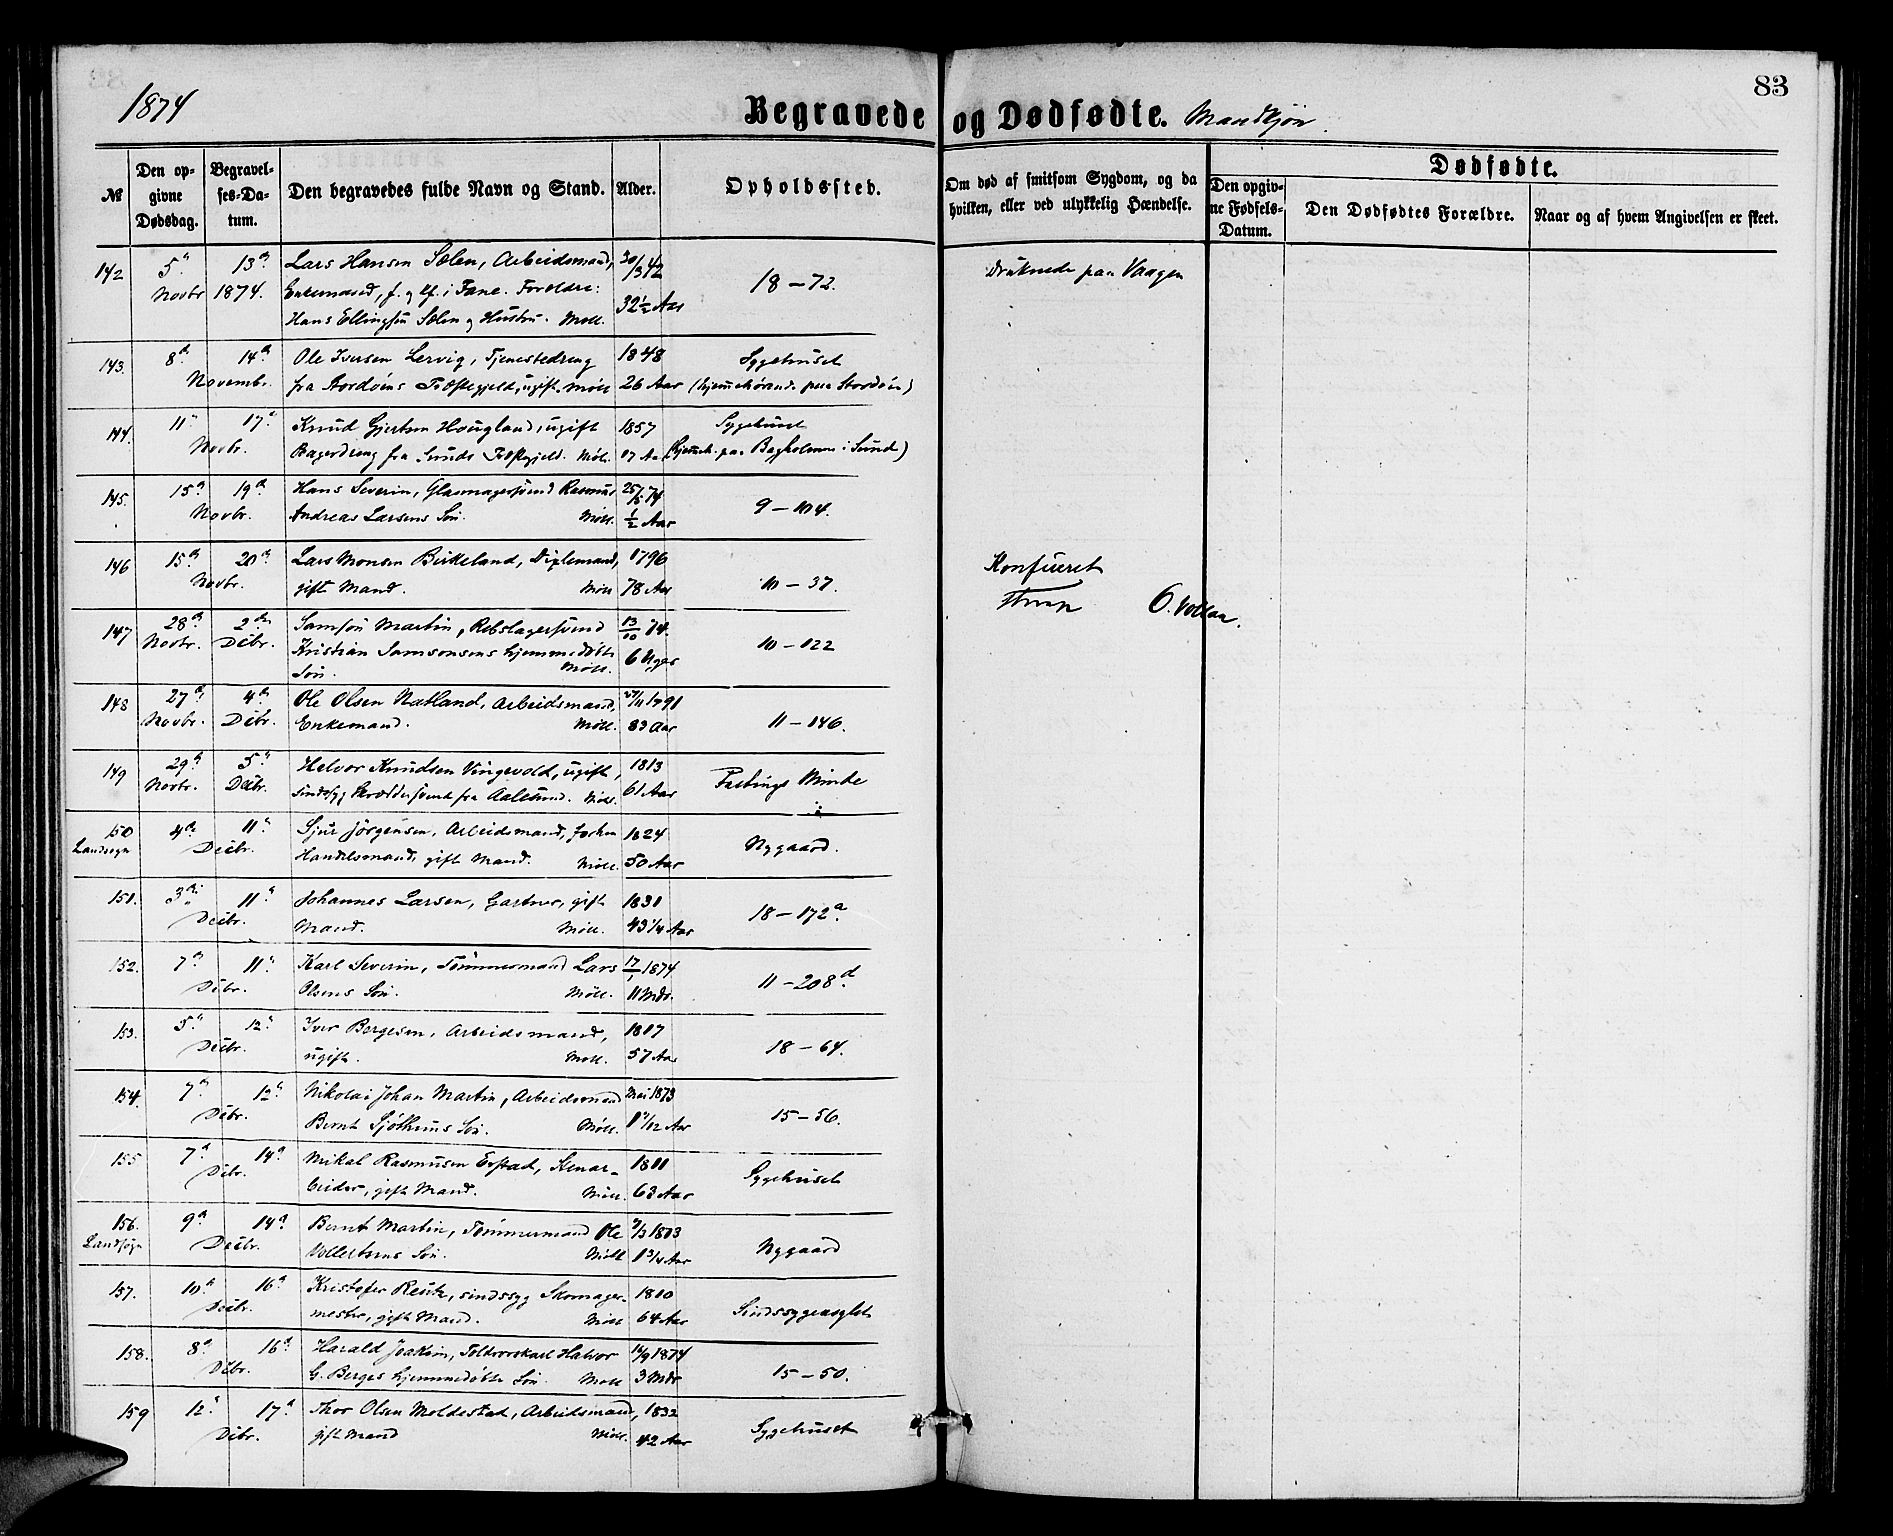 1874
Begravede og Dødfødte. Mandkjøn.
83
№
Den opgivne Dødsdag.
Begravelses-Datum.
Den begravedes fulde Navn og Stand.
Alder.
Opholdssted.
Om død af smitsom Sygdom, og da hvilken, eller ved ulykkelig Hændelse.
Dødfødte.
Den opgivne Fødsels-Datum.
Den Dødfødtes Forældre.
Naar og af hvem Angivelsen er skeet.
142 5te 13de Lars Hansen Sælen, Arbeidsmand, 30/3 42 18 – 72. Druknede paa Vaagen
Novbr 1874. Enkemand, f. og cf. i Fane. Foreldre: 32½ Aar
Hans Ellingsen Sælen og Hustru. Möll.
143. 8de 14de Ole Iversen Lervig, Tjenestedreng 1848 Sygehuset
Novembr. fra Stordöens Præstegjeld, ugift. Möll 26 Aar (hjemmehörende paa Stordöen)
144. 11te 17de Knud Gjertsen Hougland, ugift 1857 Sygehuset
Novbr. Bagerdreng fra Sunds Præstegjeld. Möll. 17 Aar (hjemmeh. paa Bagholmen i Sund)
145. 15de 19de Hans Severin, Glasmagersvend Rasmus 25/5 74 9 – 104.
Novbr. Andreas Larsens Sön. Möll. ½ Aar
146 15de 20de Lars Monsen Birkeland, 1796 10 – 37. Konfereret
Novbr. gift Mand. Möll 78 Aar
6. Vollan.
147 28de 2den Samson Martin, Rebslagersvend 13/10 74. 10 – 122
Novbr. Decbr. Kristian Samsonsens hjemmedöbte 6 Uger
Sön. Möll.
148 27de 4de Ole Olsen Natland, Arbeidsmand, 27/11 1791 11 – 146.
Novbr. Decbr. Enkemand. Möll. 83 Aar
149 29de 5te Helvor Knudsen Vingevold, ugift, 1813 Fastings Minde
Novbr. Decbr. sindssyg Skræddersvend fra Aalesund. Möll. 61 Aar
150 4de 11te Sjur Jörgensen, Arbeidsmand, forhen 1824 Nygaard.
Landsogn Decbr. Handelsmand, gift Mand. Möll. 50 Aar
151. 3die 11te Johannes Larsen, Gartner, gift 1831 18 – 172a.
Decbr. Mand. Möll. 43¼ Aar
152. 7de 11te Karl Severin, Tömmermand Lars 17/1 1874 11 – 208d.
Decbr. Olsens Sön. Möll. 11 Mdr.
153. 5te 12te Iver Bergesen, Arbeidsmand, 1817 18 – 64.
Decbr. ugift. Möll. 57 Aar
154. 7de 12te Nikolai Johan Martin, Arbeidsmand Mai 1873 15 – 56.
Decbr. Bernt Sjöthuns Sön. Möll. 1 7/12 Aar
155 7de 14de Mikal Rasmusen Evstad, Stenar- 1811 Sygehuset
Decbr. beider, gift Mand. Möll. 63 Aar
156. 9de 14de Bernt Martin, Tömmermand Ole 9/3 1873 Nygaard
Landsogn Decbr. Vollertsens Sön. Möll 1¾ Aar
157. 10de 16de Kristofer Reutz, sindssyg Skomager- 1810 Sindssygeasylet
Decbr. mester, gift Mand. Möll 64 Aar
158. 8de 16de Harald Joakim, Toldvorskarl Halvor 16/9 1874 15 – 50.
Decbr. G. Berges hjemmedöbte Sön. Möll 3 Mdr
159 12te 17de Thor Olsen Moldestad, Arbeidsmand, 1832 Sygehuset
Decbr. gift Mand Möll. 42 Aar